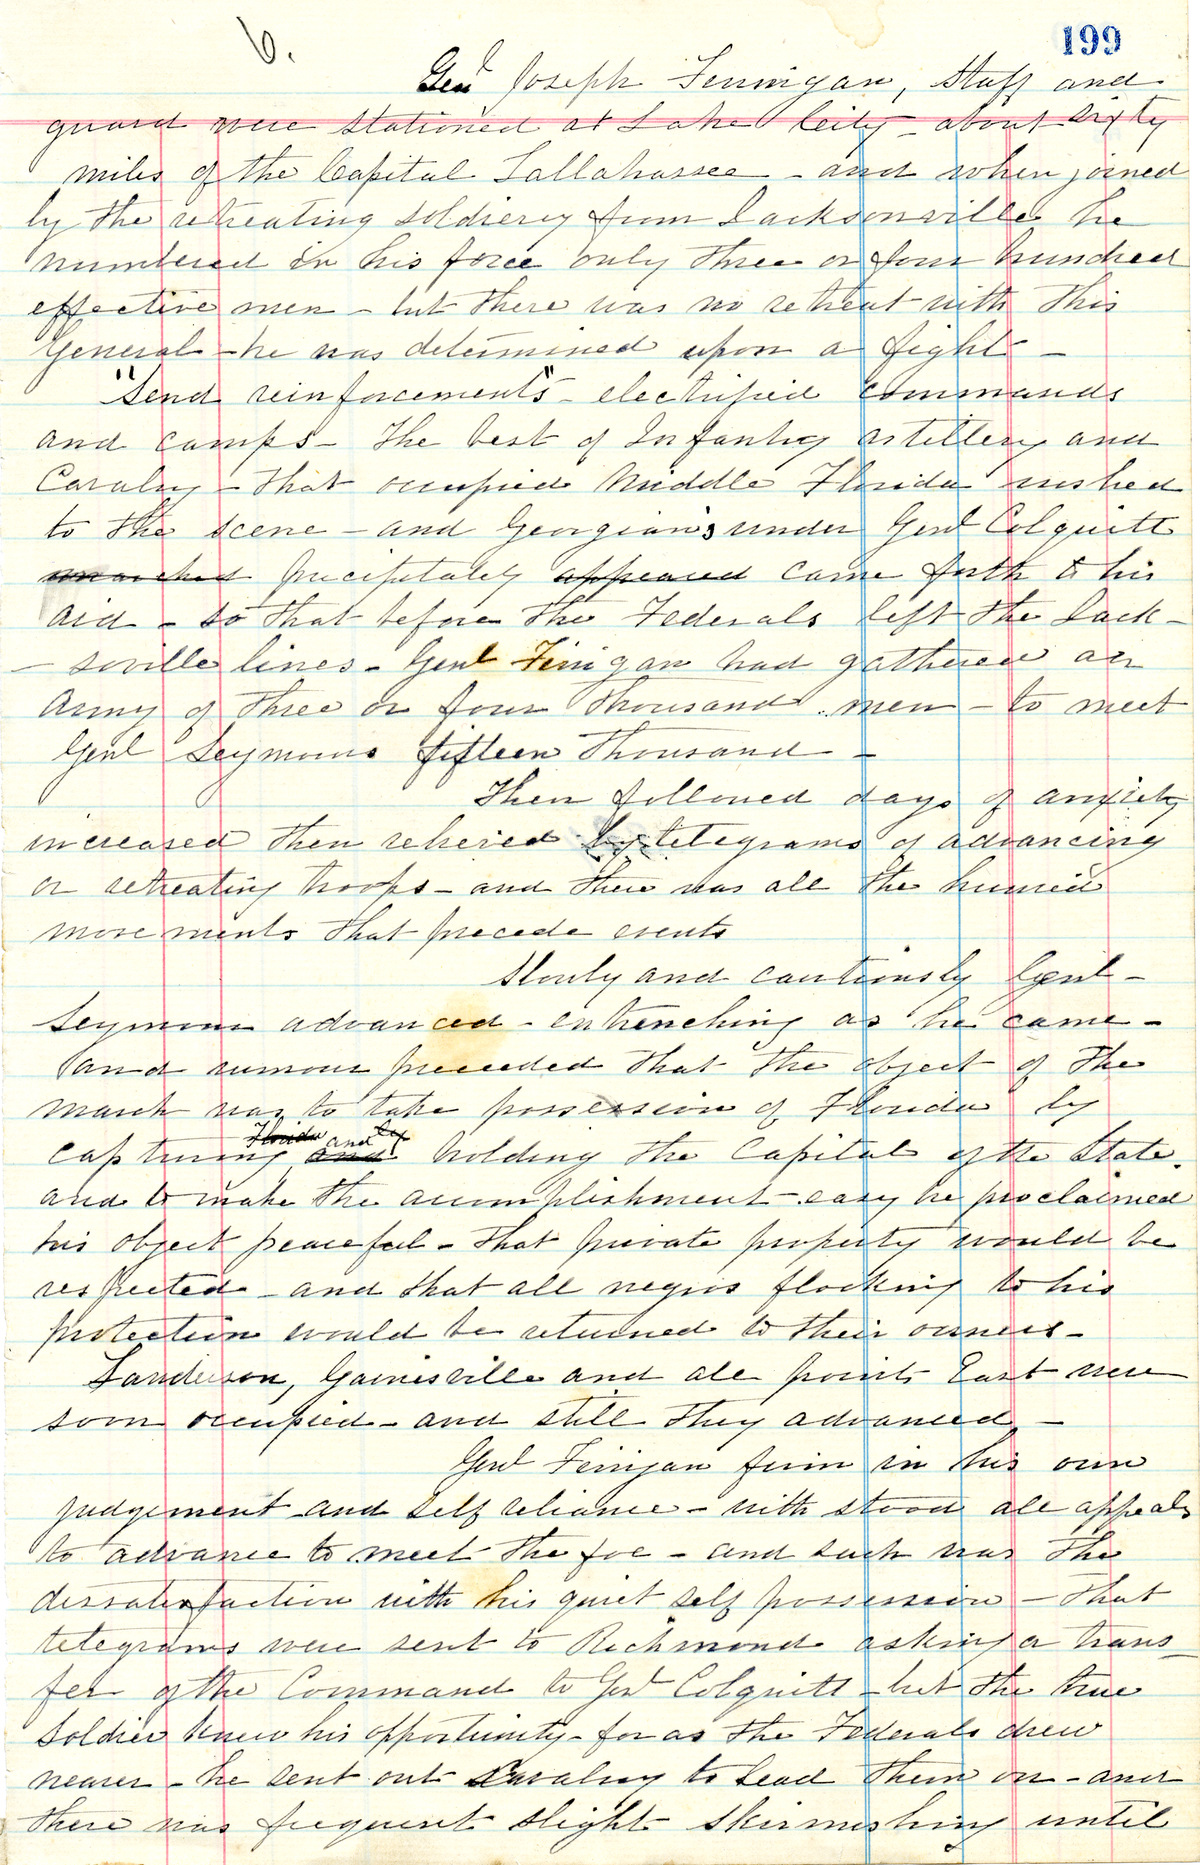 6.
199
Genl Joseph Finnigan, Staff and
guard were stationed at Lake City about sixty
miles of the Capital Tallahassee - and when joined
by the retreating soldiery from Jacksonville he
numbered in his force only three or four hundred
effective men - but there was no retreat with this
General - he was determined upon a fight -
"Send reinforcements" - electrified commands
and camps - The best of Infantry artillery and
Cavalry - that occupied Middle Florida rushed
to the scene - and Georgians under Genl Colquitt
marched precipitately appeared came forth to his
aid - so that before the Federals left the Jack -
- sonville lines - Genl Finigan had gathered an
Army of three or four thousand men - to meet
Genl Seymours fifteen thousand -
Then followed days of anxiety
increased then relieved by telegrams of advancing
or retreating troops - and there was all the hurried
movements that precede events
Slowly and cautiously Genl -
Seymour advanced - entrenching as he came -
and rumour preceeded that the object of the
march was to take possession of Florida by
Florida and by
capturing and holding the Capital of the State.
and to make the accomplishment - easy he proclaimed
his object peaceful - that private property would be
respected - and that all negros flocking to his
protection would be returned to their owners -
Sanderson, Gainesville and all points East were
soon occupied - and still they advanced -
Genl Finigan firm in his own
judgement and self reliance - with stood all appeals
to advance to meet the foe - and such was the
dissatisfaction with his quiet self possession - that
telegrams were sent to Richmond asking a trans -
fer of the Command to Genl Colquitt - but the true
soldier knew his opportunity - for as the Federals drew
nearer - he sent out Cavalry to lead them on - and
there was frequent slight skirmishing until